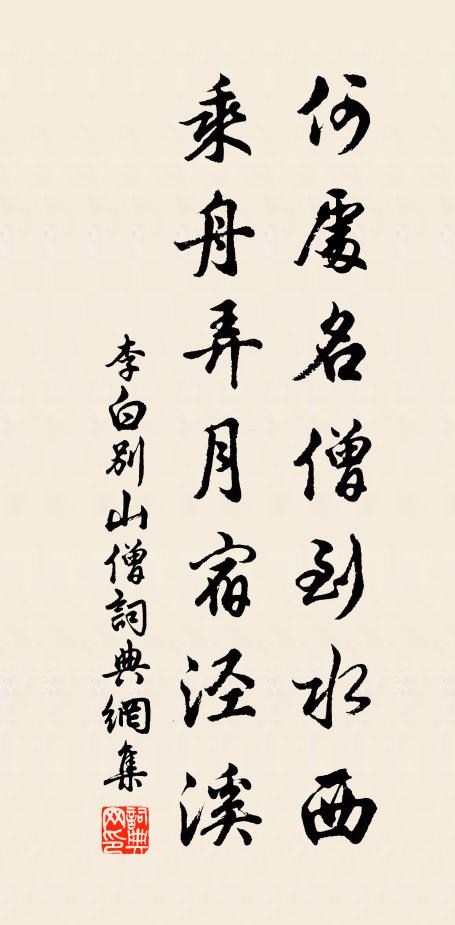 何處名僧到水西
乘舟弄月宿涇溪
李白別山僧詞典網集
詞典網印